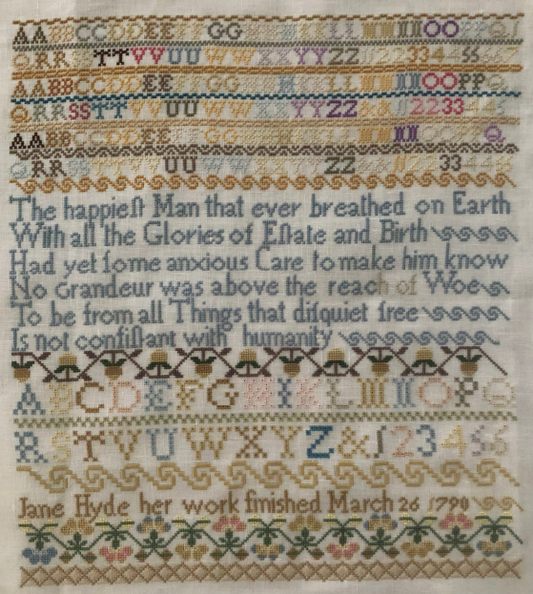 AABBCCDDEEFFGGHHIIKKLLMMNNOOPPQ
QRRSSTTVVUUWWXXYYZZ
AABBCCDDEEFFGGHHIIKKLLMMNNOOPPQ
QRRSSTTVVUUWWXXYYZZ&&11223344
AABBCCDDEEFFGGHHIIKKLLMMNNOOPPQ
QRRSSTTVVUUWWXXYYZZ
The happieſt Man that ever breathed on Earth
With all the Glories of Eſtate and Birth
Had yet ſome anxious Care to make him know
No Grandeur was above the reach of Woe
To be from all Things that diſquiet free
Is not conſiſtant with humanity
ABCDEFGHIKLMNOPQ
RSTVUWXYZ&123456
Jane Hyde her work finished March 26 1790